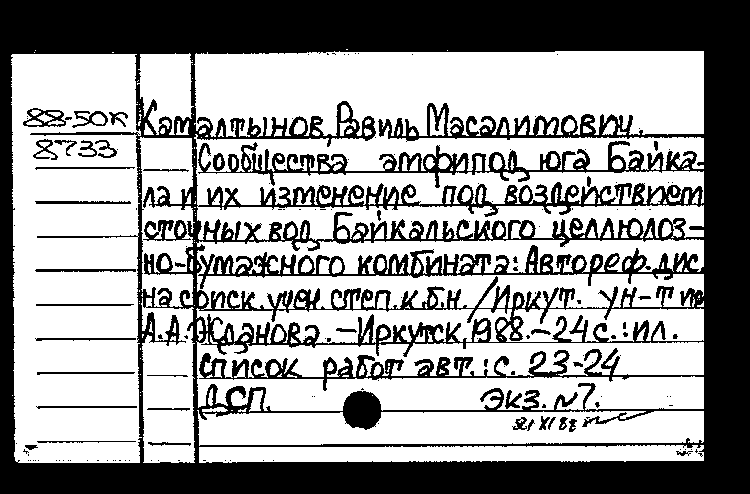 88-50к Каталтынов, Равиль Масалимович.
8733
Сообщества амфипод юга Байка-
ла и их изменение под воздействием
сточных вод Байкальского целлюлоз-
но-бумажного комбината: Автореф. дис.
на соиск. учен. степ. к.б.н. / Иркут. ун-т им
А.А. Жданова. - Иркутск, 1988. - 24 с.: ил.
Список работ авт.: с. 23-24.
ДСП. Экз. №7.
XI 88